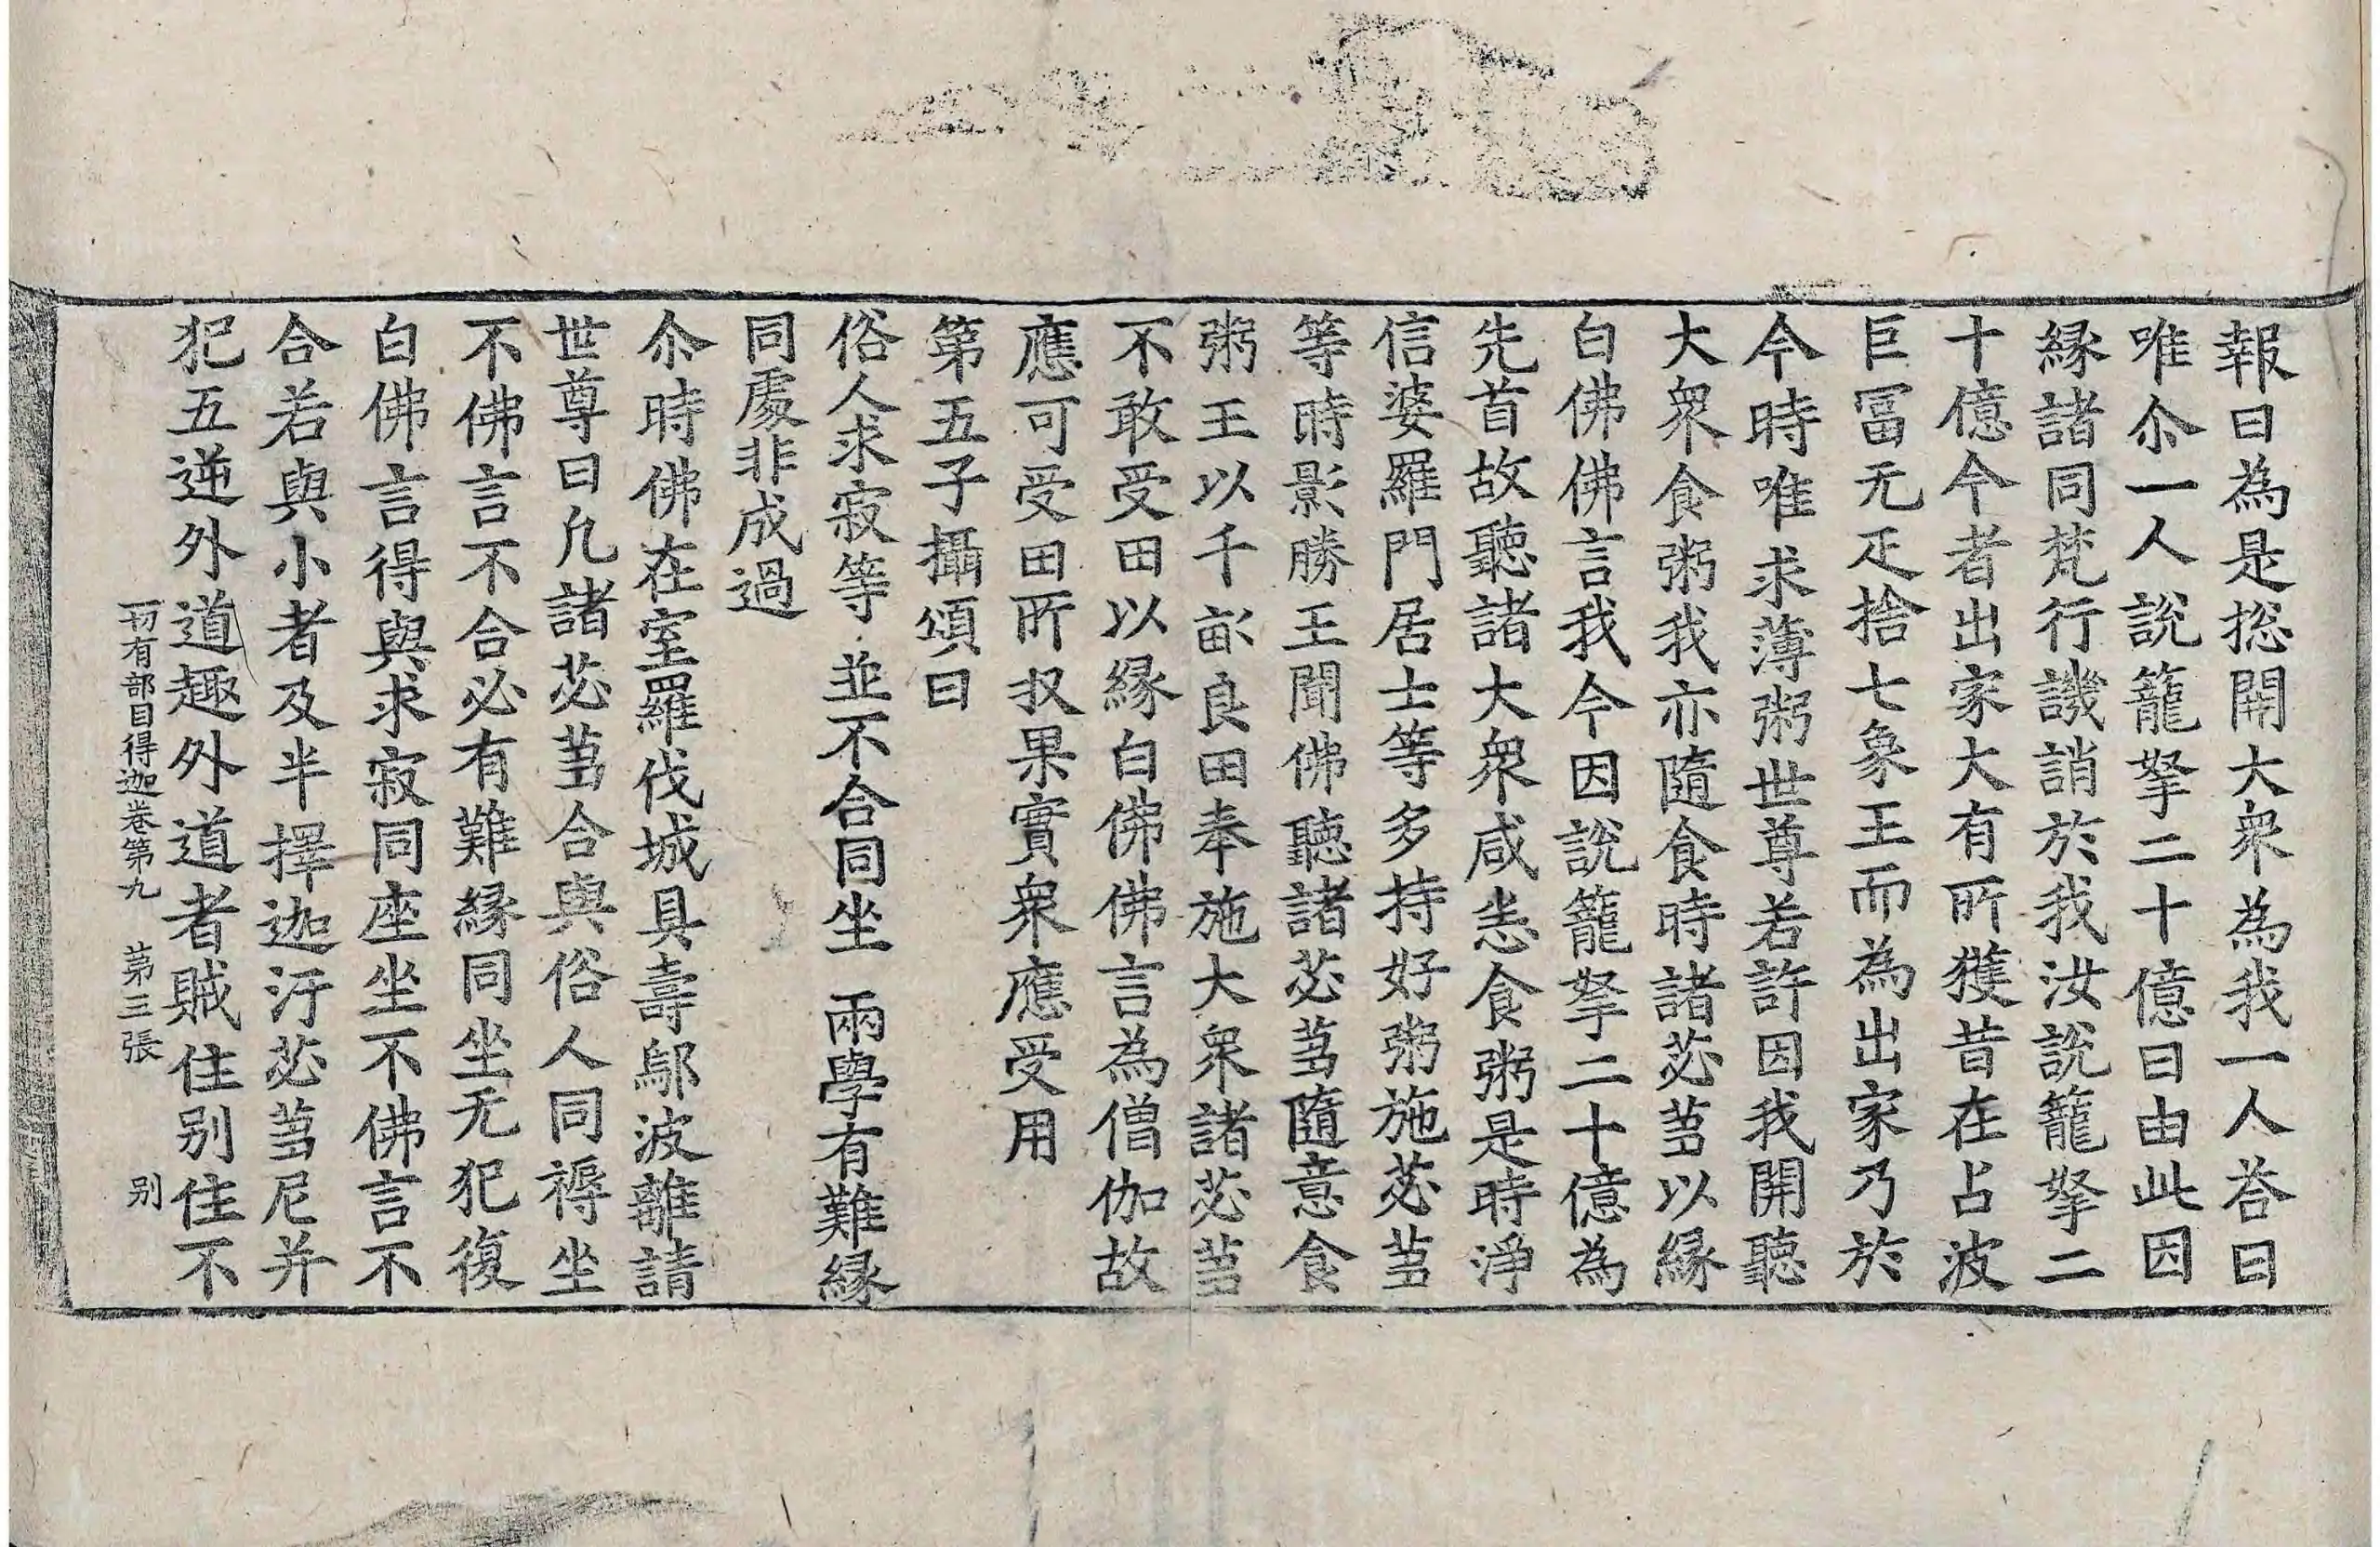 報曰為是捴開大衆為我一人荅曰
唯尒一人說籠拏二十億曰由此因
縁諸同梵行譏誚於我汝說籠拏二
十億今者出家大有所獲昔在占波
巨冨无疋捨七象王而為出家乃於
今時唯求薄粥世尊若許因我開聽
大衆食粥我亦隨食時諸苾蒭以縁
白佛佛言我今因說籠拏二十億為
先首故聽諸大衆咸悉食粥是時淨
信婆羅門居士等多持好粥施苾蒭
等時影勝王聞佛聽諸苾蒭隨意食
粥王以千畝良田奉施大衆諸苾蒭
不敢受田以縁白佛佛言為僧伽故
應可受田所収果實衆應受用
第五子攝頌曰
俗人求寂等　並不合同坐　兩學有難縁
同處非成過
尒時佛在室羅伐城具壽鄔波離請
世尊曰凡諸苾蒭合與俗人同褥坐
不佛言不合必有難縁同坐无犯復
白佛言得與求寂同座坐不佛言不
合若與小者及半擇迦汙苾蒭尼并
犯五逆外道趣外道者賊住别住不
一切有部目得迦卷第九　第三張　别